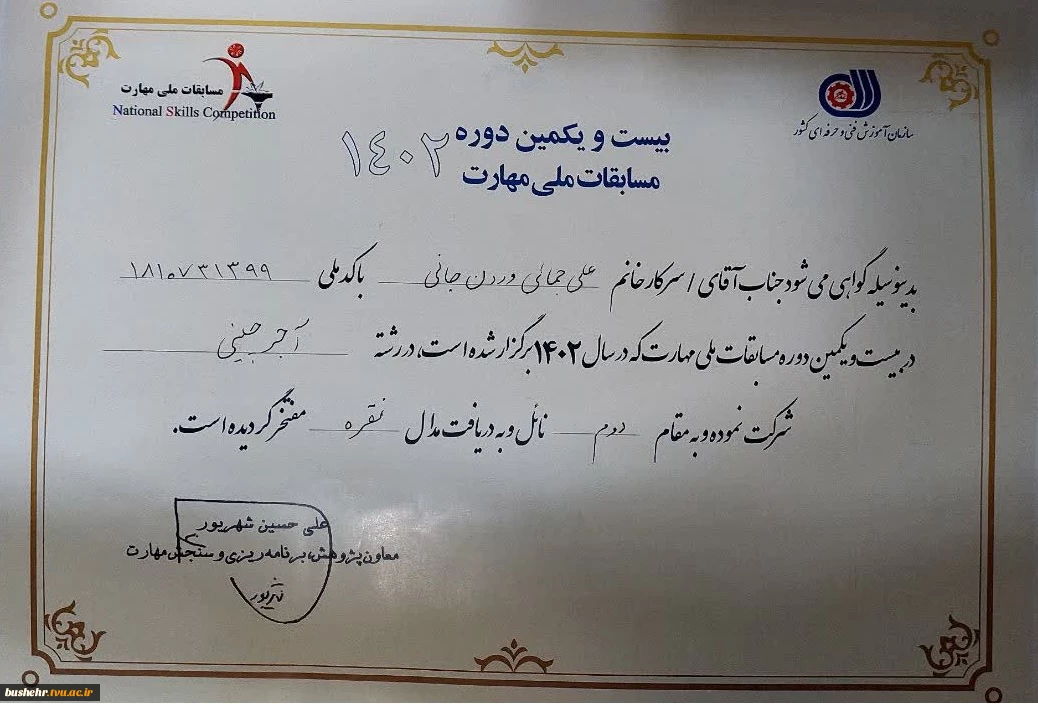 مسابقات ملی مهارت
National Skills Competition
سازمان آموزش فنی و حرفه ای کشور
بیست و یکمین دوره
مسابقات ملی مهارت
۱۴۰۲
بدینوسیله گواهی می شود جناب آقای / سرکار خانم علی جمالی وردن جانی با کد ملی ۱۸۱۰۷۳۱۳۹۹
در بیست و یکمین دوره مسابقات ملی مهارت که در سال ۱۴۰۲ برگزار شده است، در رشته آجر چینی
شرکت نموده و به مقام دوم نائل و به دریافت مدال نقره مفتخر گردیده است.
علی حسین شهریور
معاون پژوهش، برنامه ریزی و سنجش مهارت
bushehr.tvu.ac.ir